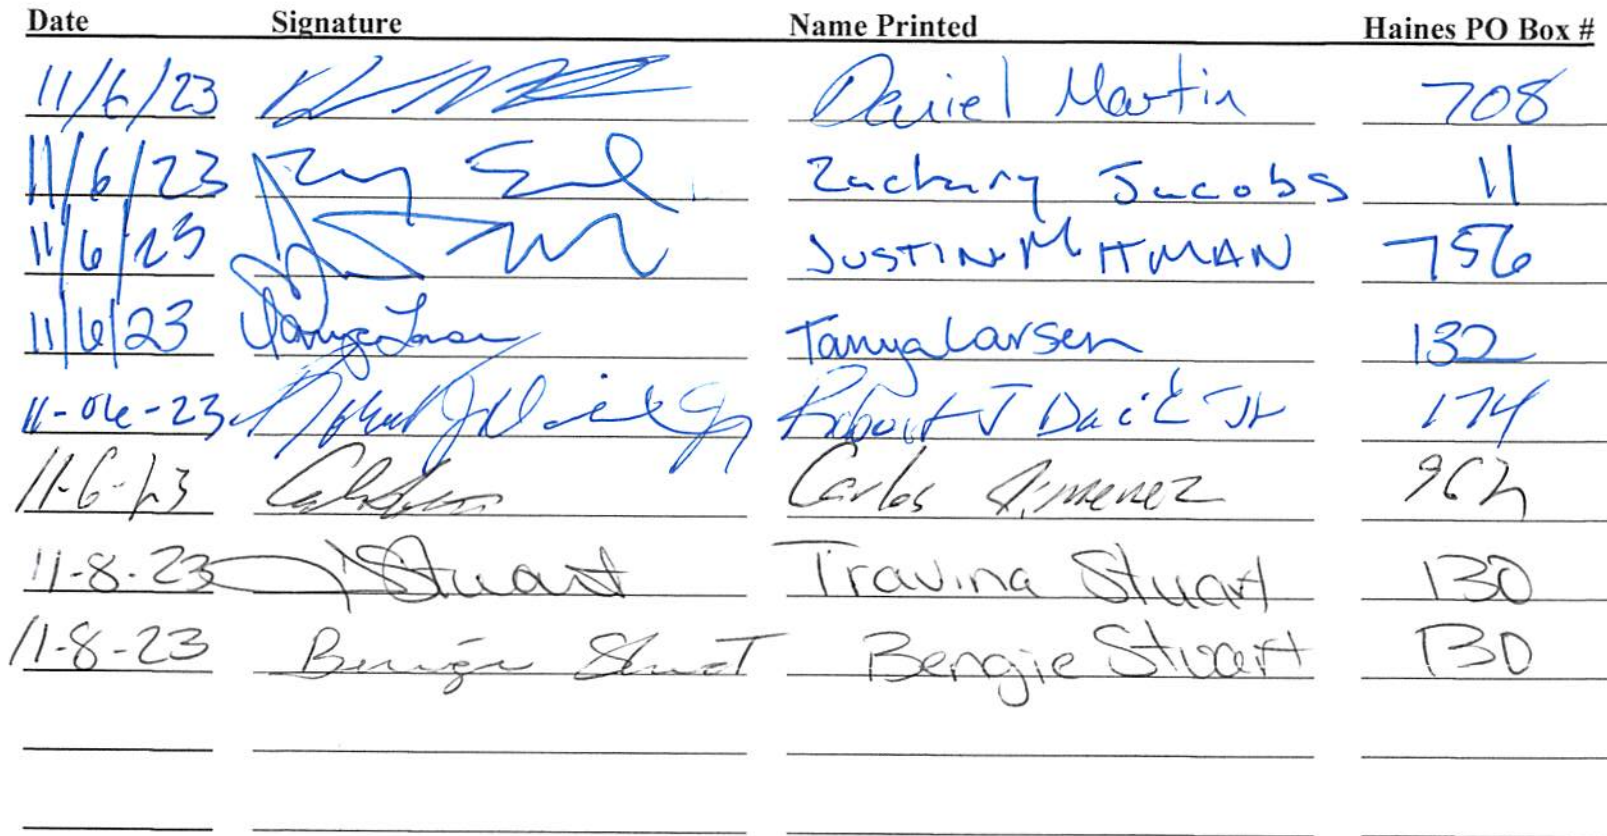 Date Signature Name Printed Haines PO Box #
11/6/23 Daniel Martin 708
11/6/23 Zachary Jacobs 11
11/6/23 JUSTIN MITMAN 756
11/6/23 Tanya Larsen Tanya Larsen 132
11-06-23 Robert J 174
11-6-23 Carlos Jimenez
11-8-23 Stuart Travina Stuart 130
11-8-23 Bengie Stuart Bengie Stuart 130